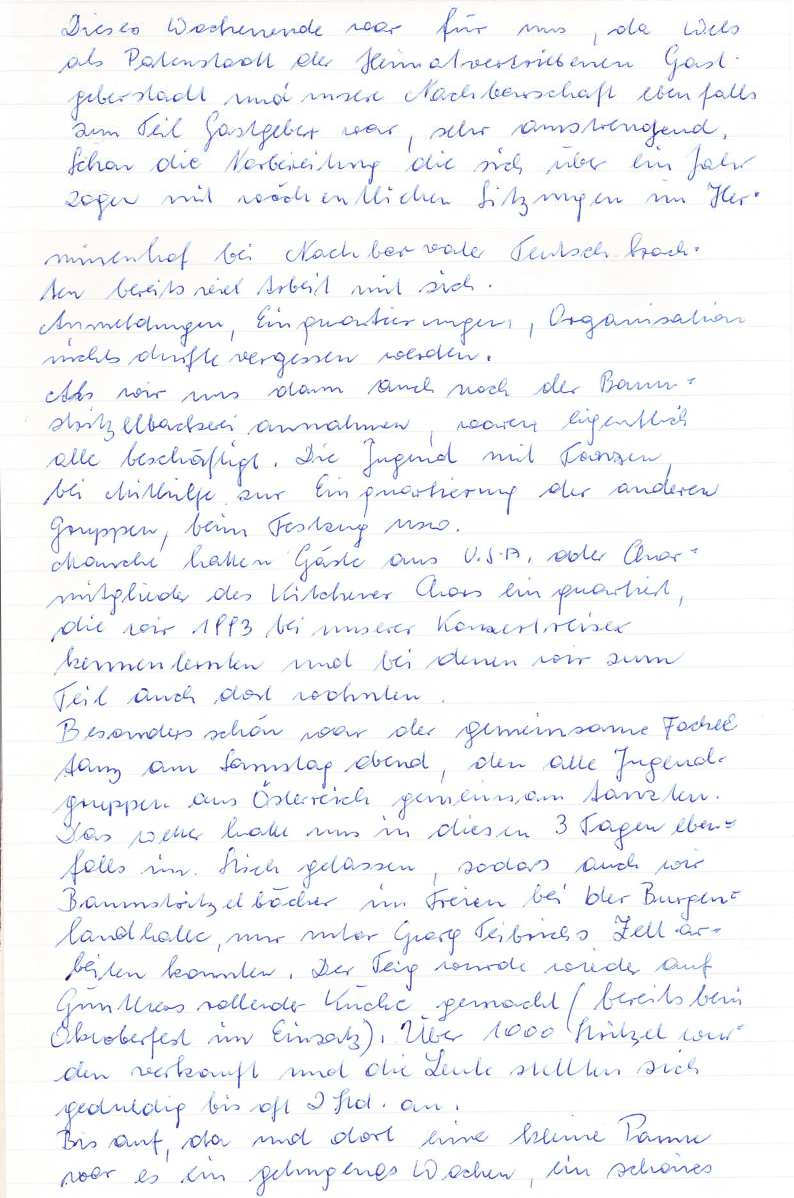 Dieses Wochenende war für uns, da Wels
als Patenstadt der Heimatvertriebenen Gast-
geberstadt und unsere Nachbarschaft ebenfalls
zum Teil Gastgeber war, sehr anstrengend.
Schon die Vorbereitung die sich über ein Jahr
zogen mit wöchentlichen Sitzungen im Her-
minenhof bei Nachbarvater Teutsch brach-
ten bereits viel Arbeit mit sich.
Anmeldungen, Einquartierungen, Organisation
nichts durfte vergessen werden.
Als wir uns dann auch noch der Baum-
stritzelbackerei annahmen, waren eigentlich
alle beschäftigt. Die Jugend mit Tanzen,
bei Mithilfe zur Einquartierung der anderen
Gruppen, beim Festzug usw.
Manche hatten Gäste aus U.S.A. oder Chor-
mitglieder des Kitchener Chors einquartiert,
die wir 1993 bei unserer Konzertreise
kennenlernten und bei denen wir zum
Teil auch dort wohnten.
Besonders schön war der gemeinsame Fackel
tanz am Samstag abend, den alle Jugend-
gruppen aus Österreich gemeinsam tanzten.
Das Wetter hatte uns in diesen 3 Tagen eben-
falls im Stich gelassen, sodass auch wir
Baumstritzelbäcker im Freien bei der Burgen-
landhalle, nur unter Georg Zelt ar-
beiten konnten. Der Teig wurde wieder auf
Günthers rollender Küche gemacht (bereits beim
Oktoberfest im Einsatz). Über 1000 Stritzel wur-
den verkauft und die Leute stellten sich
geduldig bis oft 2 Std. an.
Bis auf, da und dort eine kleine Panne
war es ein gelungenes Wochen, ein schönes